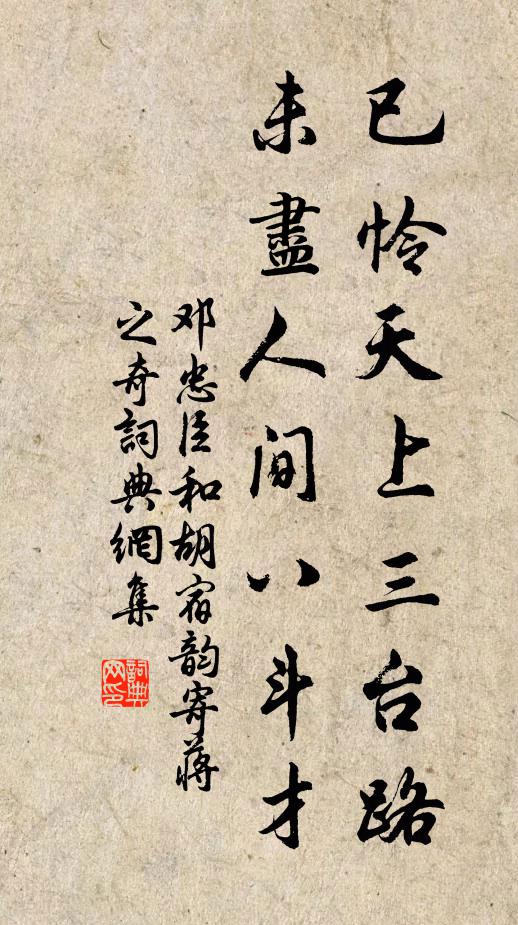 已怜天上三台路
未盡人间八斗才
邓忠臣和胡宿韵寄蒋
之奇詞典網集
詞典
网印